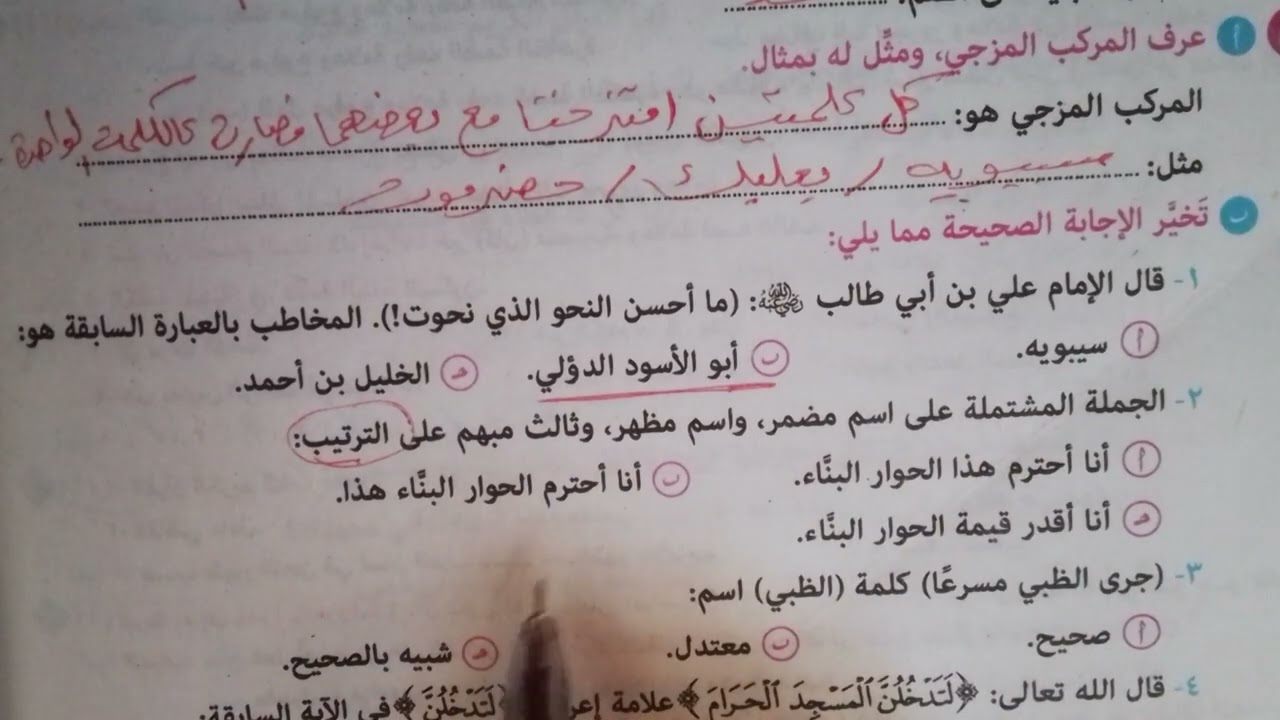 أ عرف المركب المزجي، ومثِّل له بمثال.
المركب المزجي هو: كل كلمتين امتزجتا مع بعضهما فصارت كالكلمة لواحدة
مثل: سيبويه / بعلبك / حضرموت
ب تَخيَّر الإجابة الصحيحة مما يلي:
١- قال الإمام علي بن أبي طالب ﵁: (ما أحسن النحو الذي نحوت!). المخاطب بالعبارة السابقة هو:
أ سيبويه. ب أبو الأسود الدؤلي. هـ الخليل بن أحمد.
٢- الجملة المشتملة على اسم مضمر، واسم مظهر، وثالث مبهم على الترتيب:
أ أنا أحترم هذا الحوار البنَّاء. ب أنا أحترم الحوار البنَّاء هذا.
هـ أنا أقدر قيمة الحوار البنَّاء.
٣- (جرى الظبي مسرعًا) كلمة (الظبي) اسم:
أ صحيح. ب معتدل. هـ شبيه بالصحيح.
٤- قال الله تعالى: ﴿لَتَدۡخُلُنَّ ٱلۡمَسۡجِدَ ٱلۡحَرَامَ﴾ علامة ﴿لَتَدۡخُلُنَّ﴾ في الآية السابقة: